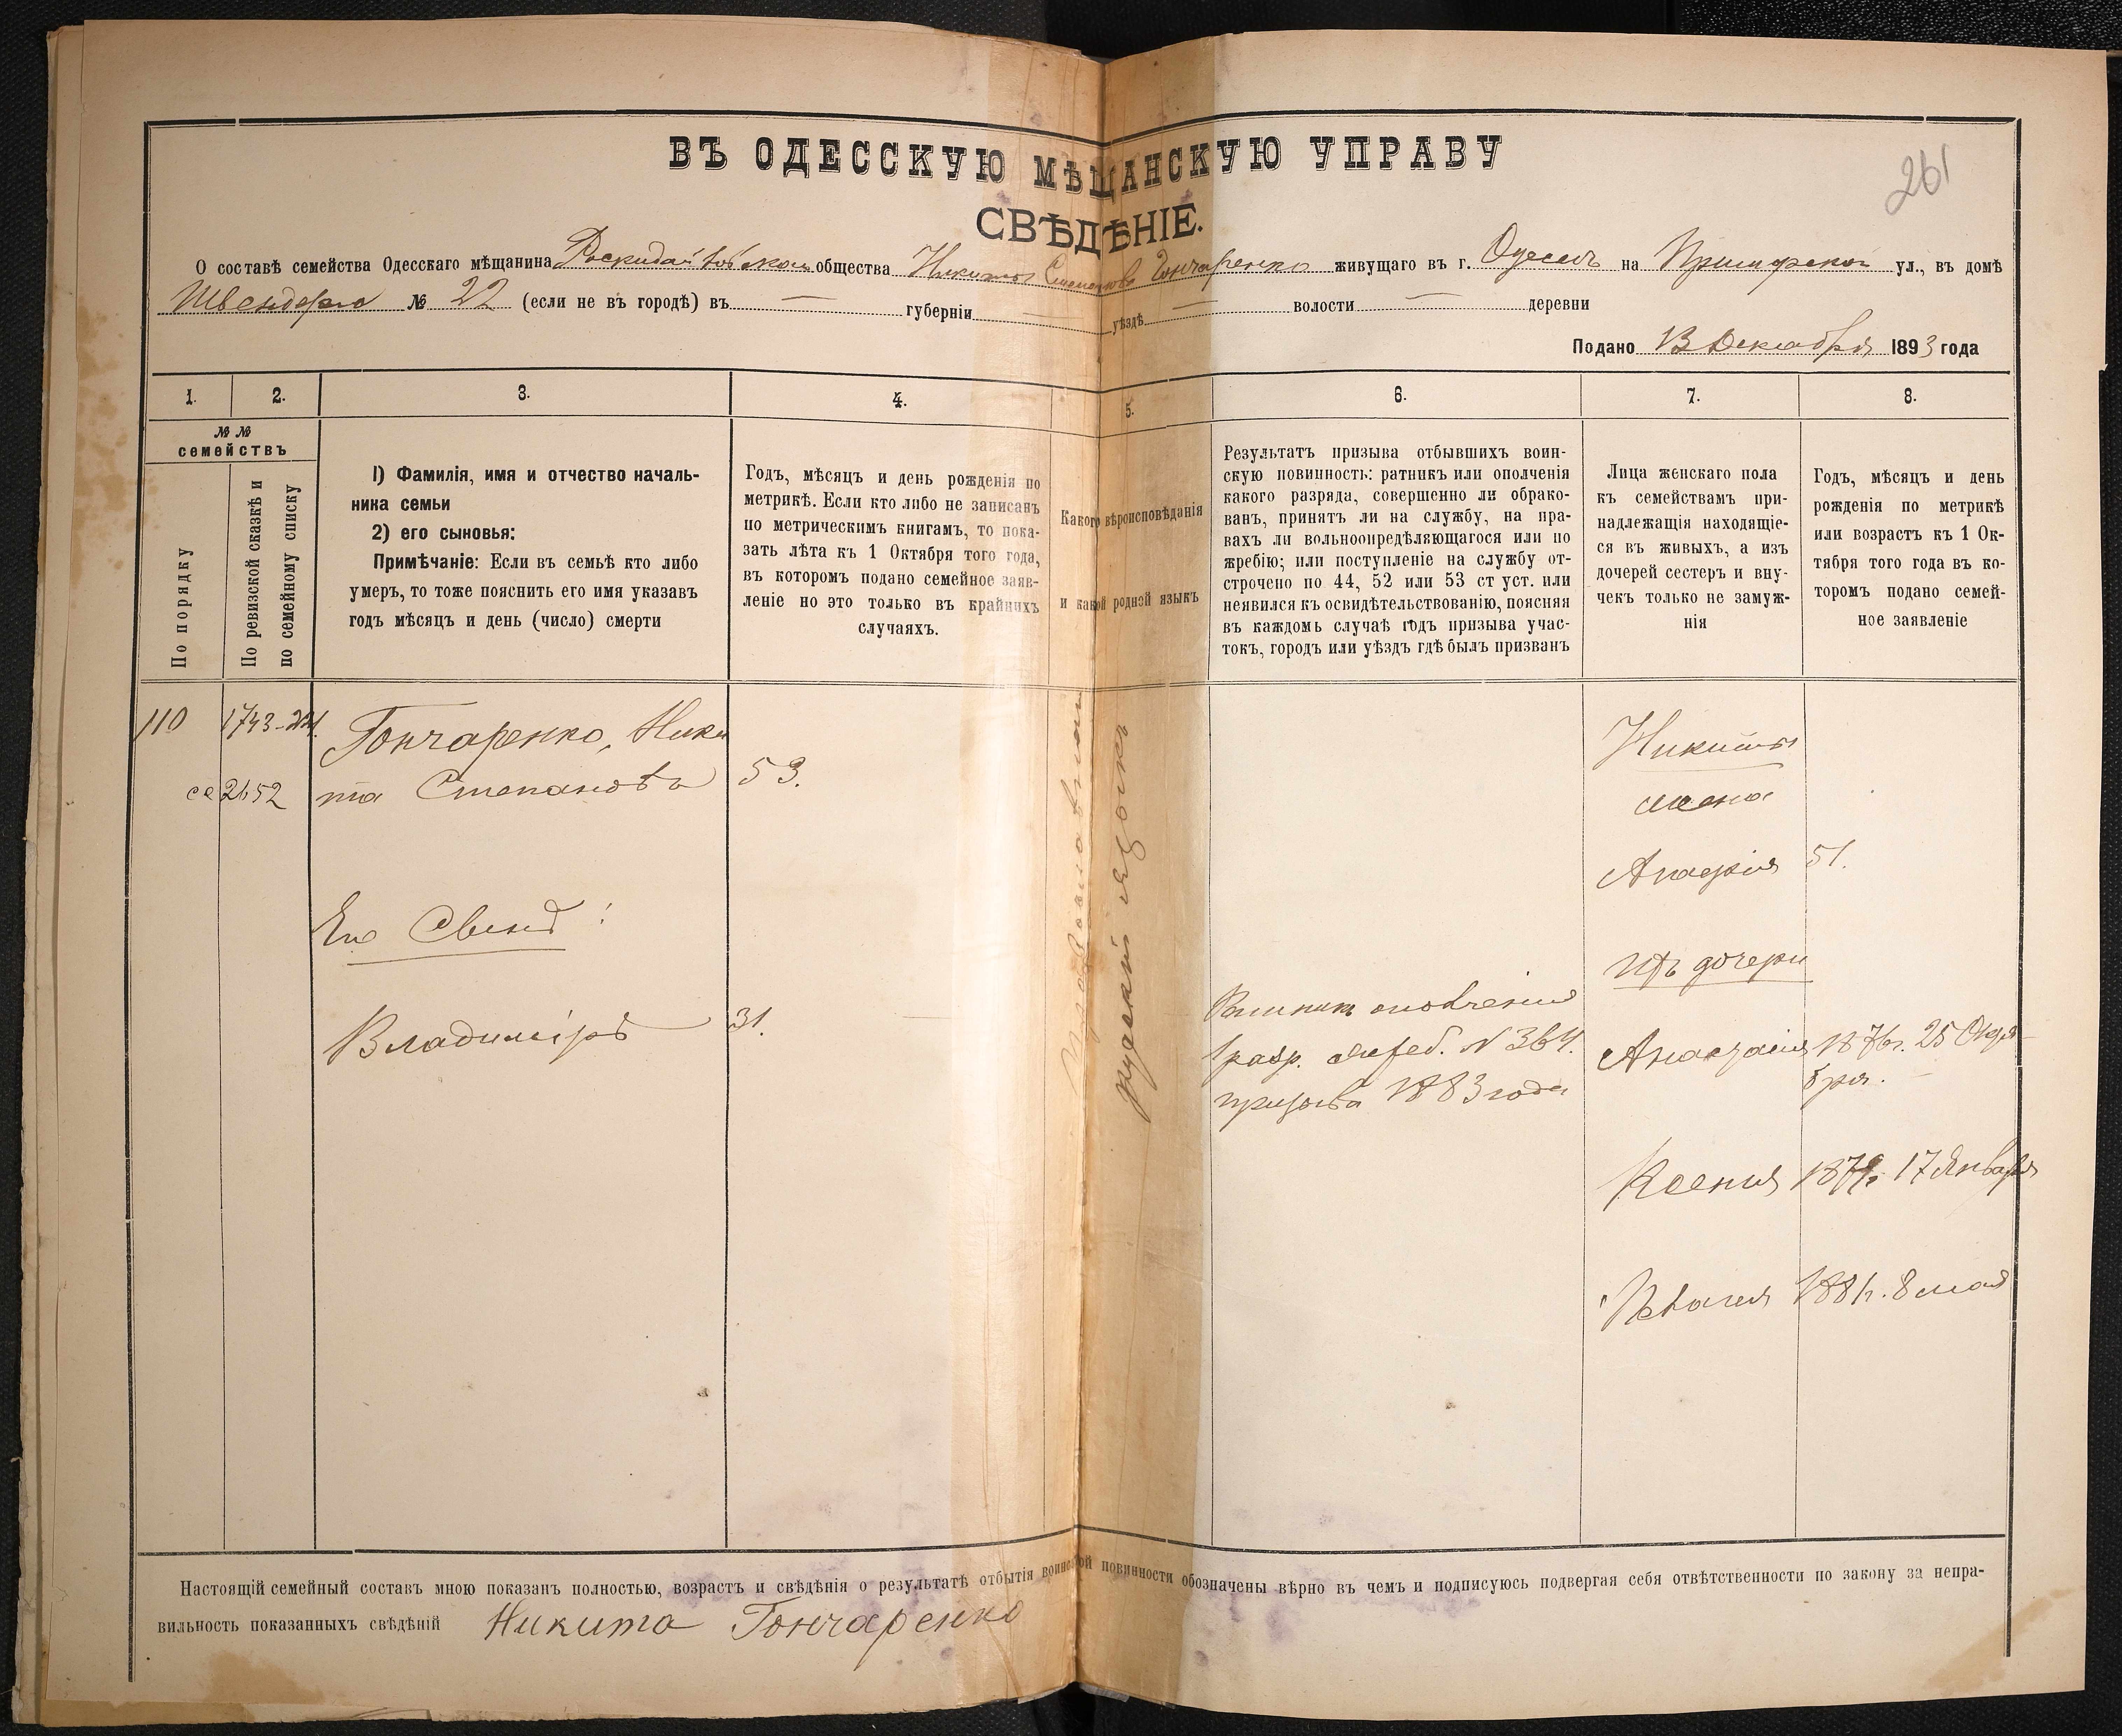 261
ВЪ ОДЕССКУЮ МѢЩАНСКУЮ УПРАВУ
СВѢДѢНІЕ.
О составѣ семейства Одесскаго мѣщанина общества Никиты Степанова Гончаренко живущаго въ г. Одессѣ на Приморской ул., въ домѣ
№ 22 (если не въ городѣ) въ — губерніи — уѣздѣ — волости — деревни
Подано 13 Декабря 1893 года
1. 2. 3. 4. 5. 6. 7. 8.
№ №
семействъ
По порядку
По ревизской сказкѣ и
по семейному списку
1) Фамилія, имя и отчество началь-
ника семьи
2) его сыновья:
Примѣчаніе: Если въ семьѣ кто либо
умеръ, то тоже пояснить его имя указавъ
годъ мѣсяцъ и день (число) смерти
Годъ, мѣсяцъ и день рожденія по
метрикѣ. Если кто либо не записанъ
по метрическимъ книгамъ, то пока-
зать лѣта къ 1 Октября того года,
въ которомъ подано семейное заяв-
леніе но это только въ крайнихъ
случаяхъ.
Какого вѣроисповѣданія
и какой родной языкъ
Результатъ призыва отбывшихъ воин-
скую повинность: ратникъ или ополченія
какого разряда, совершенно ли обрако-
ванъ, принятъ ли на службу, на пра-
вахъ ли вольноопредѣляющагося или по
жребію; или поступленіе на службу от-
строчено по 44, 52 или 53 ст уст. или
неявился къ освидѣтельствованію, поясняя
въ каждомъ случаѣ годъ призыва учас-
токъ, городъ или уѣздъ гдѣ былъ призванъ
Лица женскаго пола
къ семействамъ при-
надлежащія находящіе-
ся въ живыхъ, а изъ
дочерей сестеръ и вну-
чекъ только не замуж-
нія
Годъ, мѣсяцъ и день
рожденія по метрикѣ
или возрастъ къ 1 Ок-
тября того года въ ко-
торомъ подано семей-
ное заявленіе
110
2652
Гончаренко, Ники
та Степановъ 53.
Его Сынъ:
Владиміръ 31.
Православном
русскій языкъ
Ратникъ ополченія
1 разр. жереб. № 364.
призыва 1883 года
Никиты
жена
51.
Ихъ дочери
Анастасія 1876 г. 25 Октя-
бря.
Ксенія 17 Января
1881 г. 8 мая
Настоящій семейный составъ мною показанъ полностью, возрастъ и свѣдѣнія о результатѣ отбытія воинской повинности обозначены вѣрно въ чемъ и подписуюсь подвергая себя отвѣтственности по закону за непра-
вильность показанныхъ свѣдѣній Никита Гончаренко